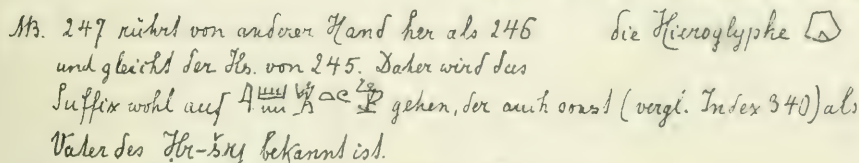 NB. 247 rührt von anderer Hand her als 246 die Hieroglyphe
und gleicht der Hs. von 245. Daher wird das
Suffix wohl auf gehen, der auch sonst (vergl. Index 340) als
Vater des Ḥr-šrj bekannt ist.